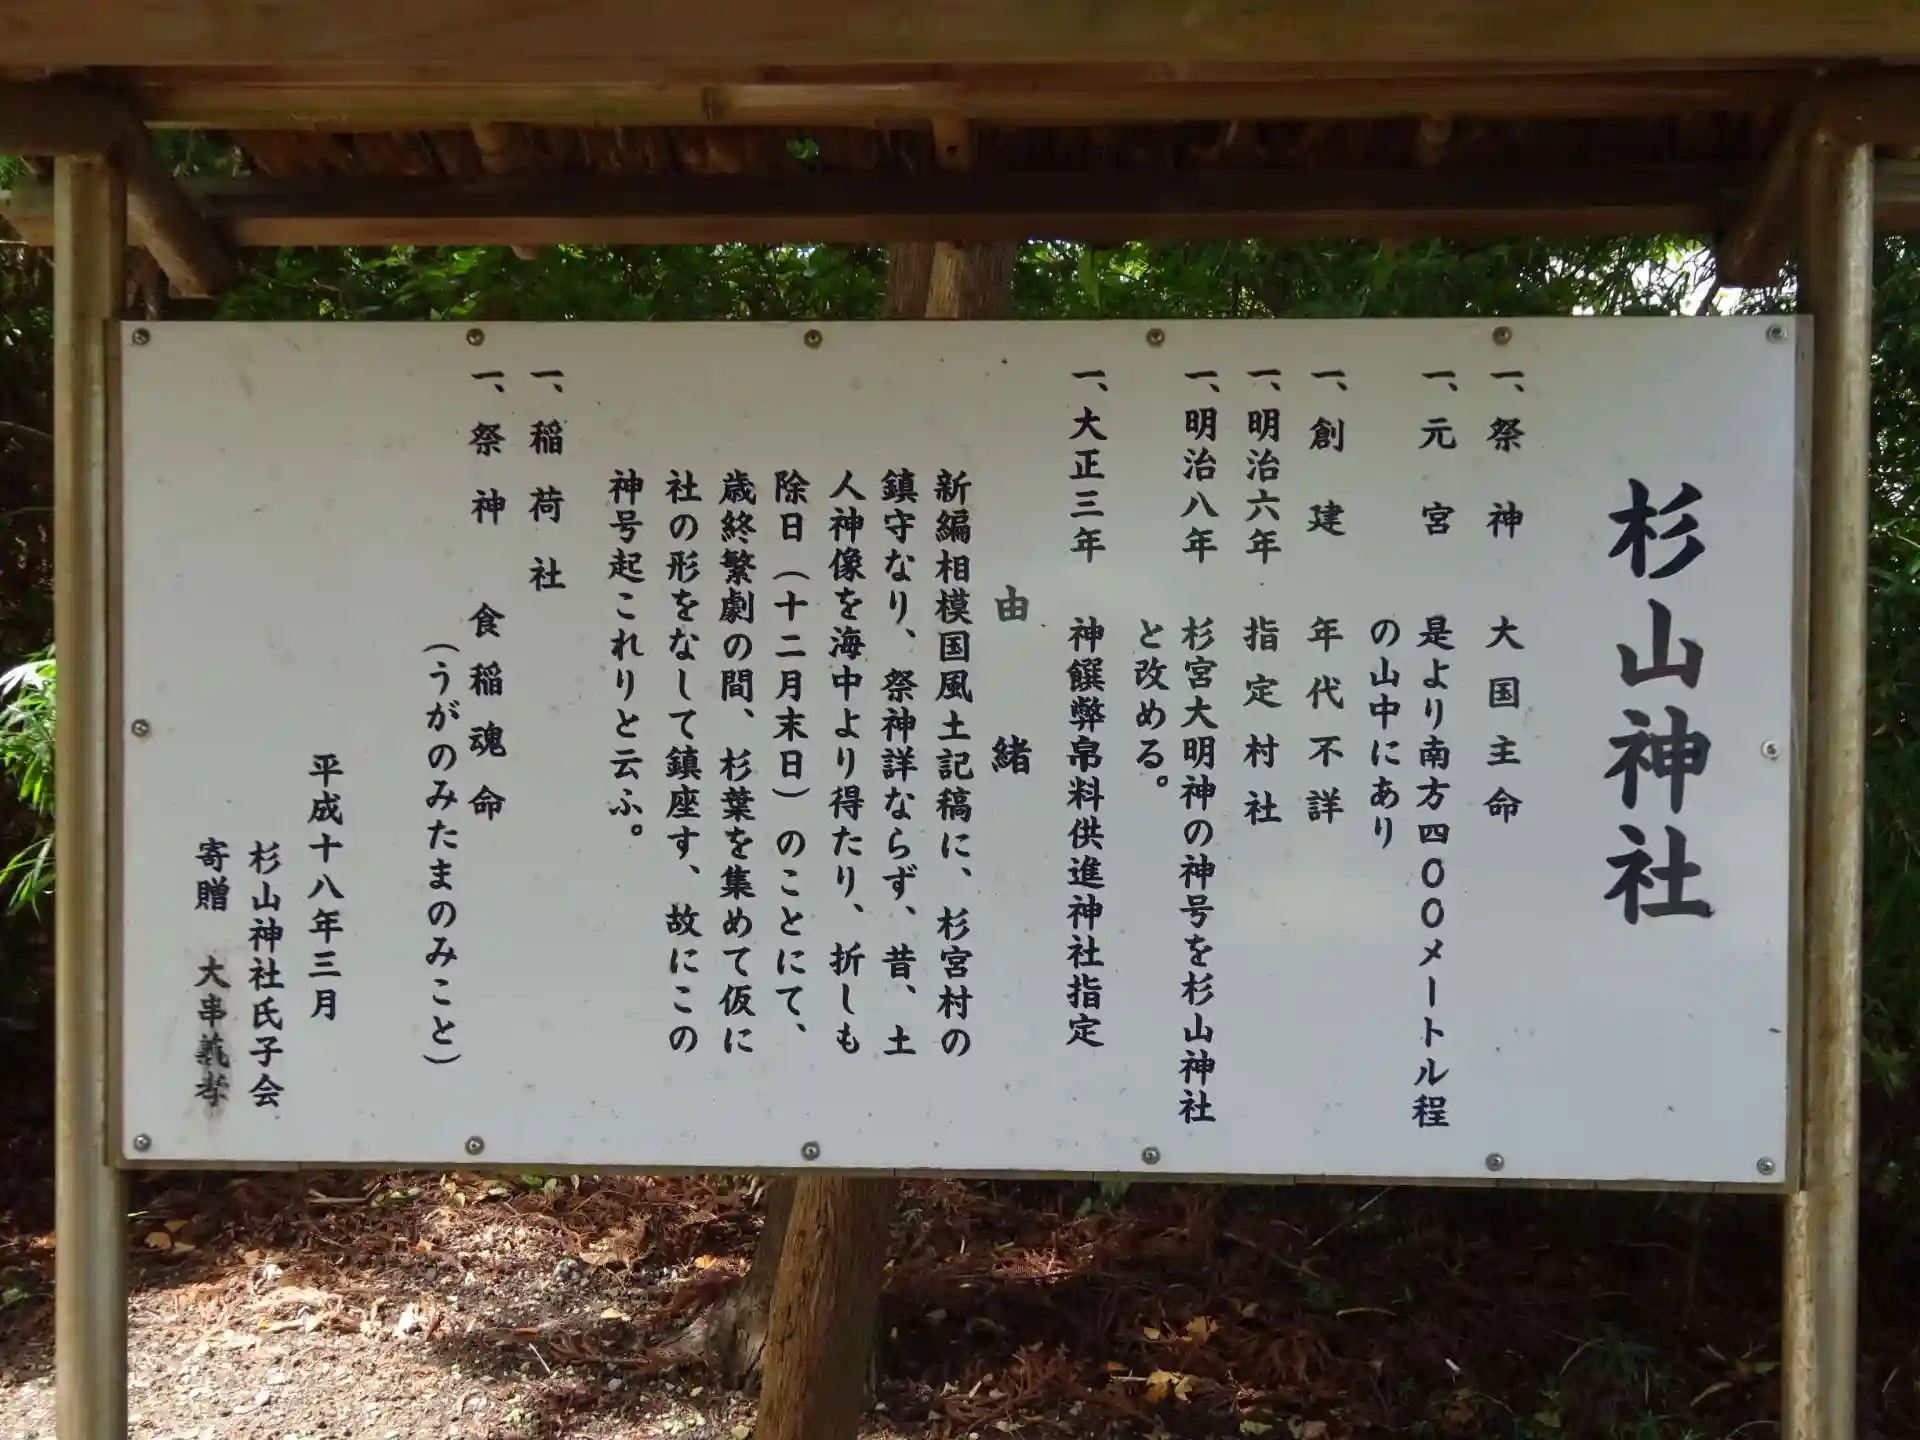 杉山神社
一、祭神 大国主命
一、元宮 是より南方四〇〇メートル程
の山中にあり
一、創建 年代不詳
一、明治六年 指定村社
一、明治八年 杉宮大明神の神号を杉山神社
と改める。
一、大正三年 神饌弊帛料供進神社指定
由緒
新編相模国風土記稿に、杉宮村の
鎮守なり、祭神詳ならず、昔、土
人神像を海中より得たり、折しも
除日（十二月末日）のことにて、
歳終繁劇の間、杉葉を集めて仮に
社の形をなして鎮座す、故にこの
神号起これりと云ふ。
一、稲荷社
一、祭神 食稲魂命
（うがのみたまのみこと）
平成十八年三月
杉山神社氏子会
寄贈 大串